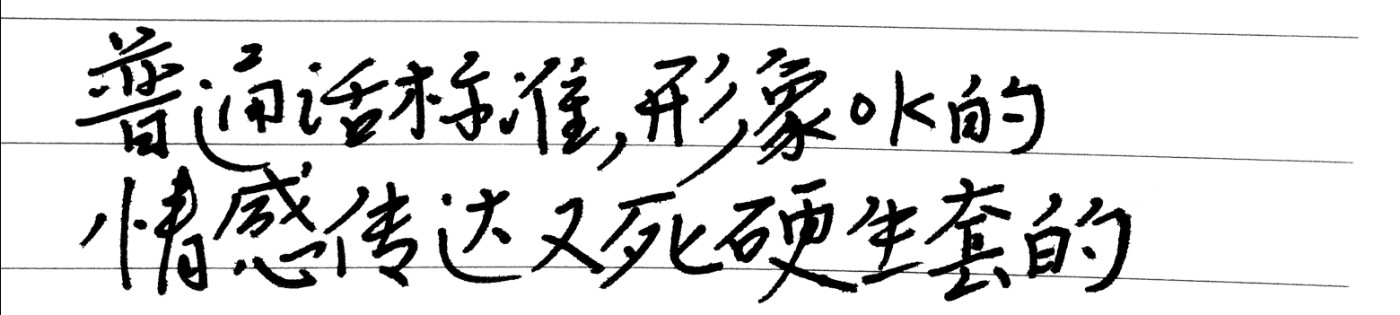 普通话标准,形象ok的
情感传达又死硬生套的